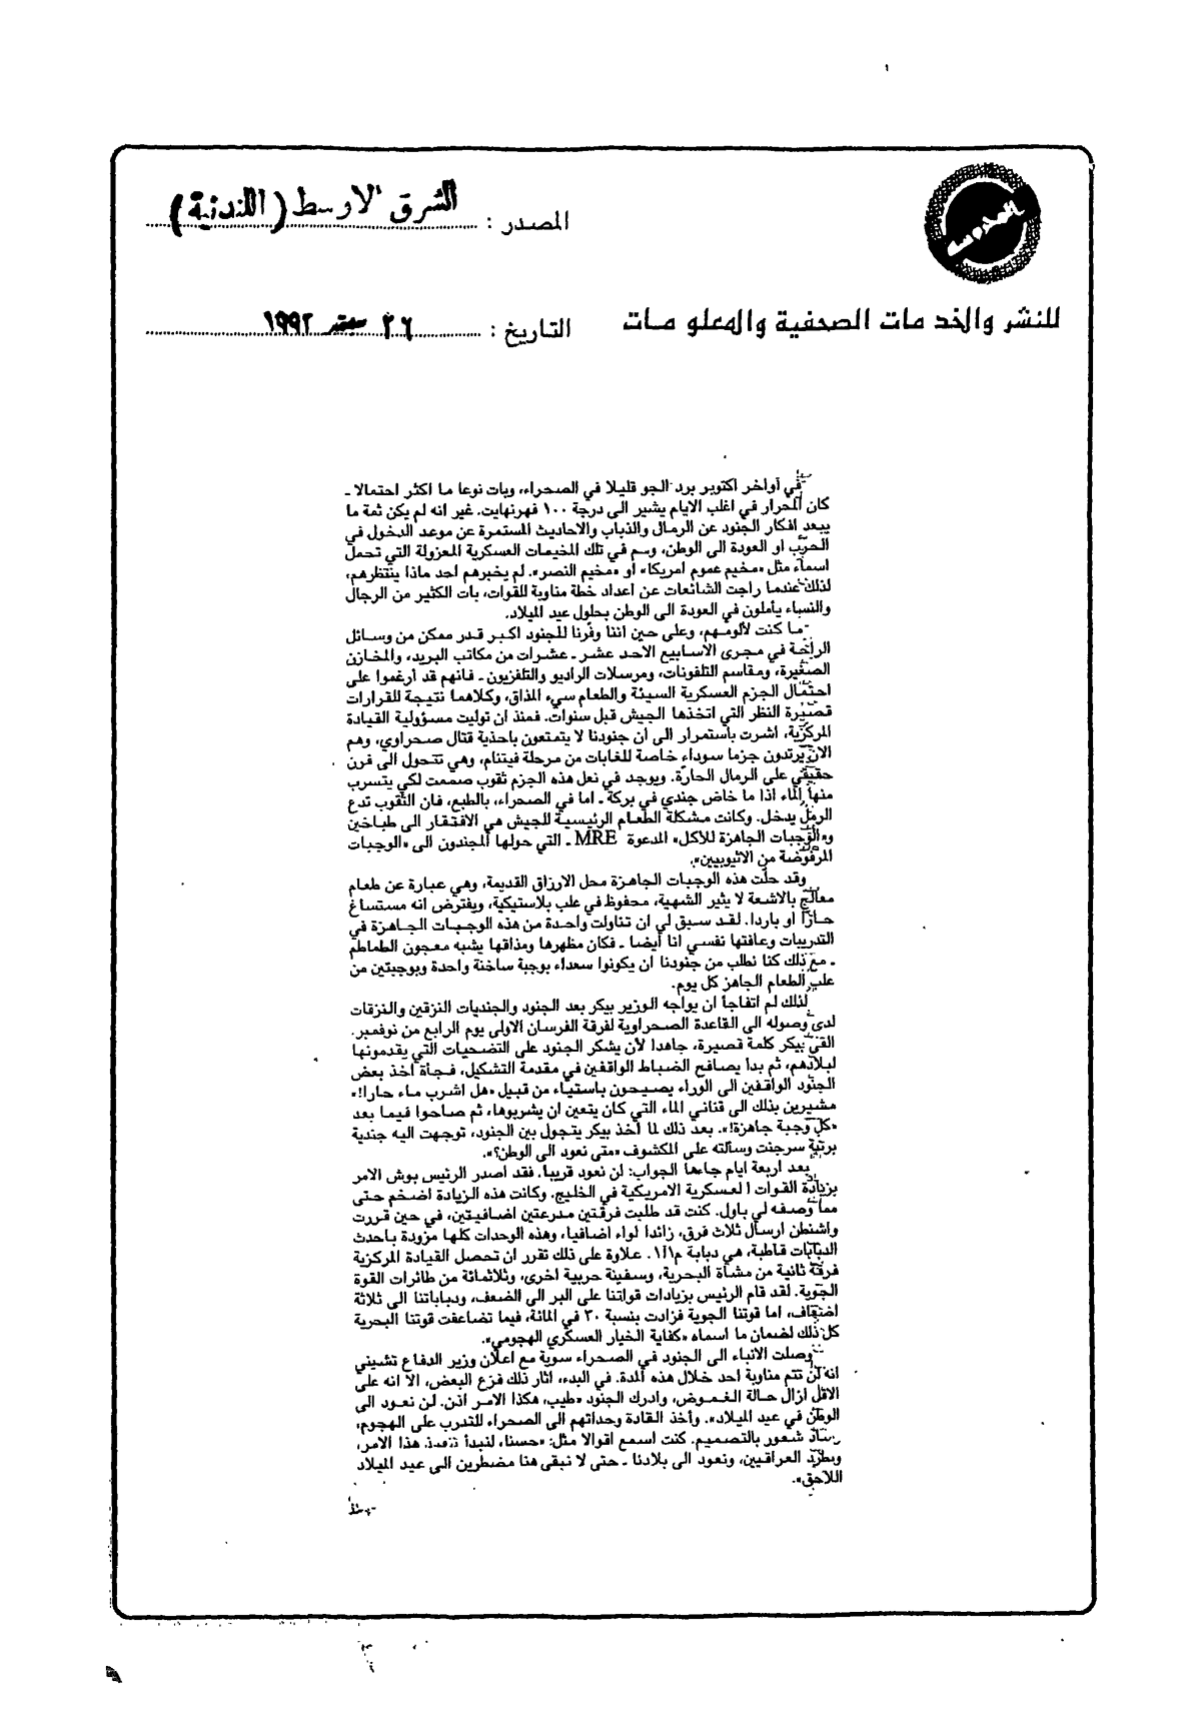 المصدر : الشرق الاوسط (اللندنية)
للنشر والخدمات الصحفية والمعلومات
التاريخ : ٢٦ سبتمبر ١٩٩٢
في أواخر اكتوبر برد الجو قليلا في الصحراء، وبات نوعا ما اكثر احتمالا ـ
كان المحرار في اغلب الايام يشير الى درجة ١٠٠ فهرنهايت. غير انه لم يكن ثمة ما
يبعد افكار الجنود عن الرمال والذباب والاحاديث المستمرة عن موعد الدخول في
الحرب او العودة الى الوطن، وسم في تلك المخيمات العسكرية المعزولة التي تحمل
اسماء مثل «مخيم عموم امريكا» او «مخيم النصر». لم يخبرهم احد ماذا ينتظرهم،
لذلك عندما راجت الشائعات عن اعداد خطة مناوبة للقوات، بات الكثير من الرجال
والنساء يأملون في العودة الى الوطن بحلول عيد الميلاد.
ما كنت لألومهم، وعلى حين اننا وفرنا للجنود اكبر قدر ممكن من وسائل
الراحة في مجرى الاسابيع الاحد عشر ـ عشرات من مكاتب البريد، والمخازن
الصغيرة، ومقاسم التلفونات، ومرسلات الراديو والتلفزيون ـ فانهم قد أرغموا على
احتمال الجزم العسكرية السيئة والطعام سيء المذاق، وكلاهما نتيجة للقرارات
قصيرة النظر التي اتخذها الجيش قبل سنوات. فمنذ ان توليت مسؤولية القيادة
المركزية، اشرت باستمرار الى ان جنودنا لا يتمتعون باحذية قتال صحراوي، وهم
الان يرتدون جزما سوداء خاصة للغابات من مرحلة فيتنام، وهي تتحول الى فرن
حقيقي على الرمال الحارة. ويوجد في نعل هذه الجزم ثقوب صممت لكي يتسرب
منها الماء اذا ما خاض جندي في بركة ـ اما في الصحراء، بالطبع، فان الثقوب تدع
الرمل يدخل. وكانت مشكلة الطعام الرئيسية للجيش هي الافتقار الى طباخين
و«الوجبات الجاهزة للاكل» المدعوة MRE ـ التي حولها المجندون الى «الوجبات
المرفوضة من الاثيوبيين».
وقد حلت هذه الوجبات الجاهزة محل الارزاق القديمة، وهي عبارة عن طعام
معالج بالاشعة لا يثير الشهية، محفوظ في علب بلاستيكية، ويفترض انه مستساغ
حارا او باردا. لقد سبق لي ان تناولت واحدة من هذه الوجبات الجاهزة في
التدريبات وعافتها نفسي انا أيضا ـ فكان مظهرها ومذاقها يشبه معجون الطماطم
ـ مع ذلك كنا نطلب من جنودنا ان يكونوا سعداء بوجبة ساخنة واحدة وبوجبتين من
علب الطعام الجاهز كل يوم.
لذلك لم اتفاجأ ان يواجه الوزير بيكر بعد الجنود والجنديات النزقين والنزقات
لدى وصوله الى القاعدة الصحراوية لفرقة الفرسان الاولى يوم الرابع من نوفمبر.
القى بيكر كلمة قصيرة، جاهدا لأن يشكر الجنود على التضحيات التي يقدمونها
لبلادهم، ثم بدأ يصافح الضباط الواقفين في مقدمة التشكيل، فجأة اخذ بعض
الجنود الواقفين الى الوراء يصيحون باستياء من قبيل «هل اشرب ماء حارا!»
مشيرين بذلك الى قناني الماء التي كان يتعين ان يشربوها، ثم صاحوا فيما بعد
«كل وجبة جاهزة!». بعد ذلك لما أخذ بيكر يتجول بين الجنود، توجهت اليه جندية
برتبة سرجنت وسألته على المكشوف «متى نعود الى الوطن؟».
بعد اربعة ايام جاءها الجواب: لن نعود قريبا. فقد اصدر الرئيس بوش الامر
بزيادة القوات العسكرية الامريكية في الخليج. وكانت هذه الزيادة اضخم حتى
مما وصفه لي باول. كنت قد طلبت فرقتين مدرعتين اضافيتين، في حين قررت
واشنطن ارسال ثلاث فرق، زائدا لواء اضافيا، وهذه الوحدات كلها مزودة باحدث
الدبابات قاطبة، هي دبابة م١أ١. علاوة على ذلك تقرر ان تحصل القيادة المركزية
فرقة ثانية من مشاة البحرية، وسفينة حربية اخرى، وثلاثمائة من طائرات القوة
الجوية. لقد قام الرئيس بزيادات قواتنا على البر الى الضعف، ودباباتنا الى ثلاثة
اضعاف، اما قوتنا الجوية فزادت بنسبة ٣٠ في المائة، فيما تضاعفت قوتنا البحرية
كل ذلك لضمان ما اسماه «كفاية الخيار العسكري الهجومي».
وصلت الانباء الى الجنود في الصحراء سوية مع اعلان وزير الدفاع تشيني
انه لن تتم مناوبة احد خلال هذه المدة. في البدء، اثار ذلك فزع البعض، الا انه على
الاقل ازال حالة الغموض، وادرك الجنود «طيب، هكذا الامر اذن. لن نعود الى
الوطن في عيد الميلاد». وأخذ القادة وحداتهم الى الصحراء للتدرب على الهجوم،
وساد شعور بالتصميم. كنت اسمع اقوالا مثل: «حسنا، لنبدأ تنفيذ هذا الامر،
ونطرد العراقيين، ونعود الى بلادنا ـ حتى لا نبقى هنا مضطرين الى عيد الميلاد
اللاحق».